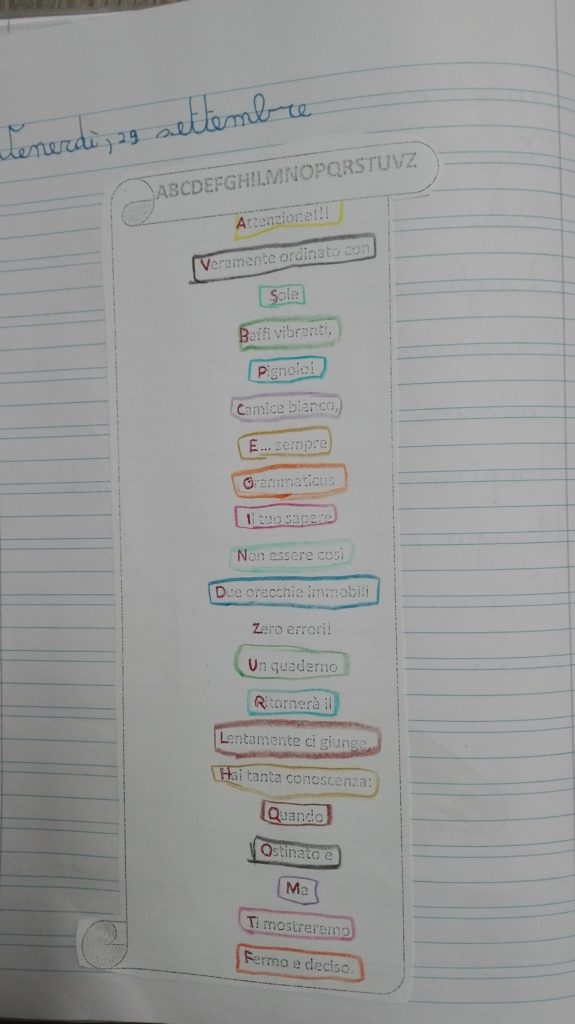 Venerdì, 29 settembre
ABCDEFGHILMNOPQRSTUVZ
Attenzione!!!
Veramente ordinato con
Sole
Baffi vibranti,
Pignolo!
Camice bianco,
E... sempre
Grammaticus
Il tuo sapere
Non essere così
Due orecchie immobili
Zero errori!
Un quaderno
Ritornerà il
Lentamente ci giunge.
Hai tanta conoscenza:
Quando
Ostinato e
Ma
Ti mostreremo
Fermo e deciso.